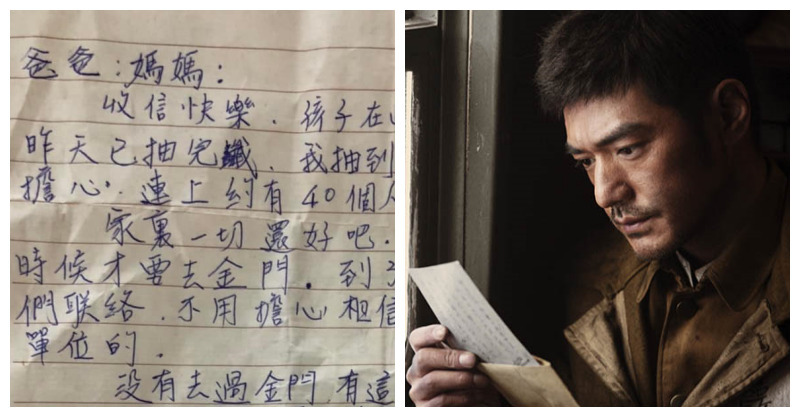 爸爸:媽媽:
收信快樂.孩子在
昨天已抽完籤.我抽到
擔心.連上約有40個人
家裏一切還好吧.
時候才要去金門.到了
們联絡.不用擔心相信
單位的.
没有去過金門.有這